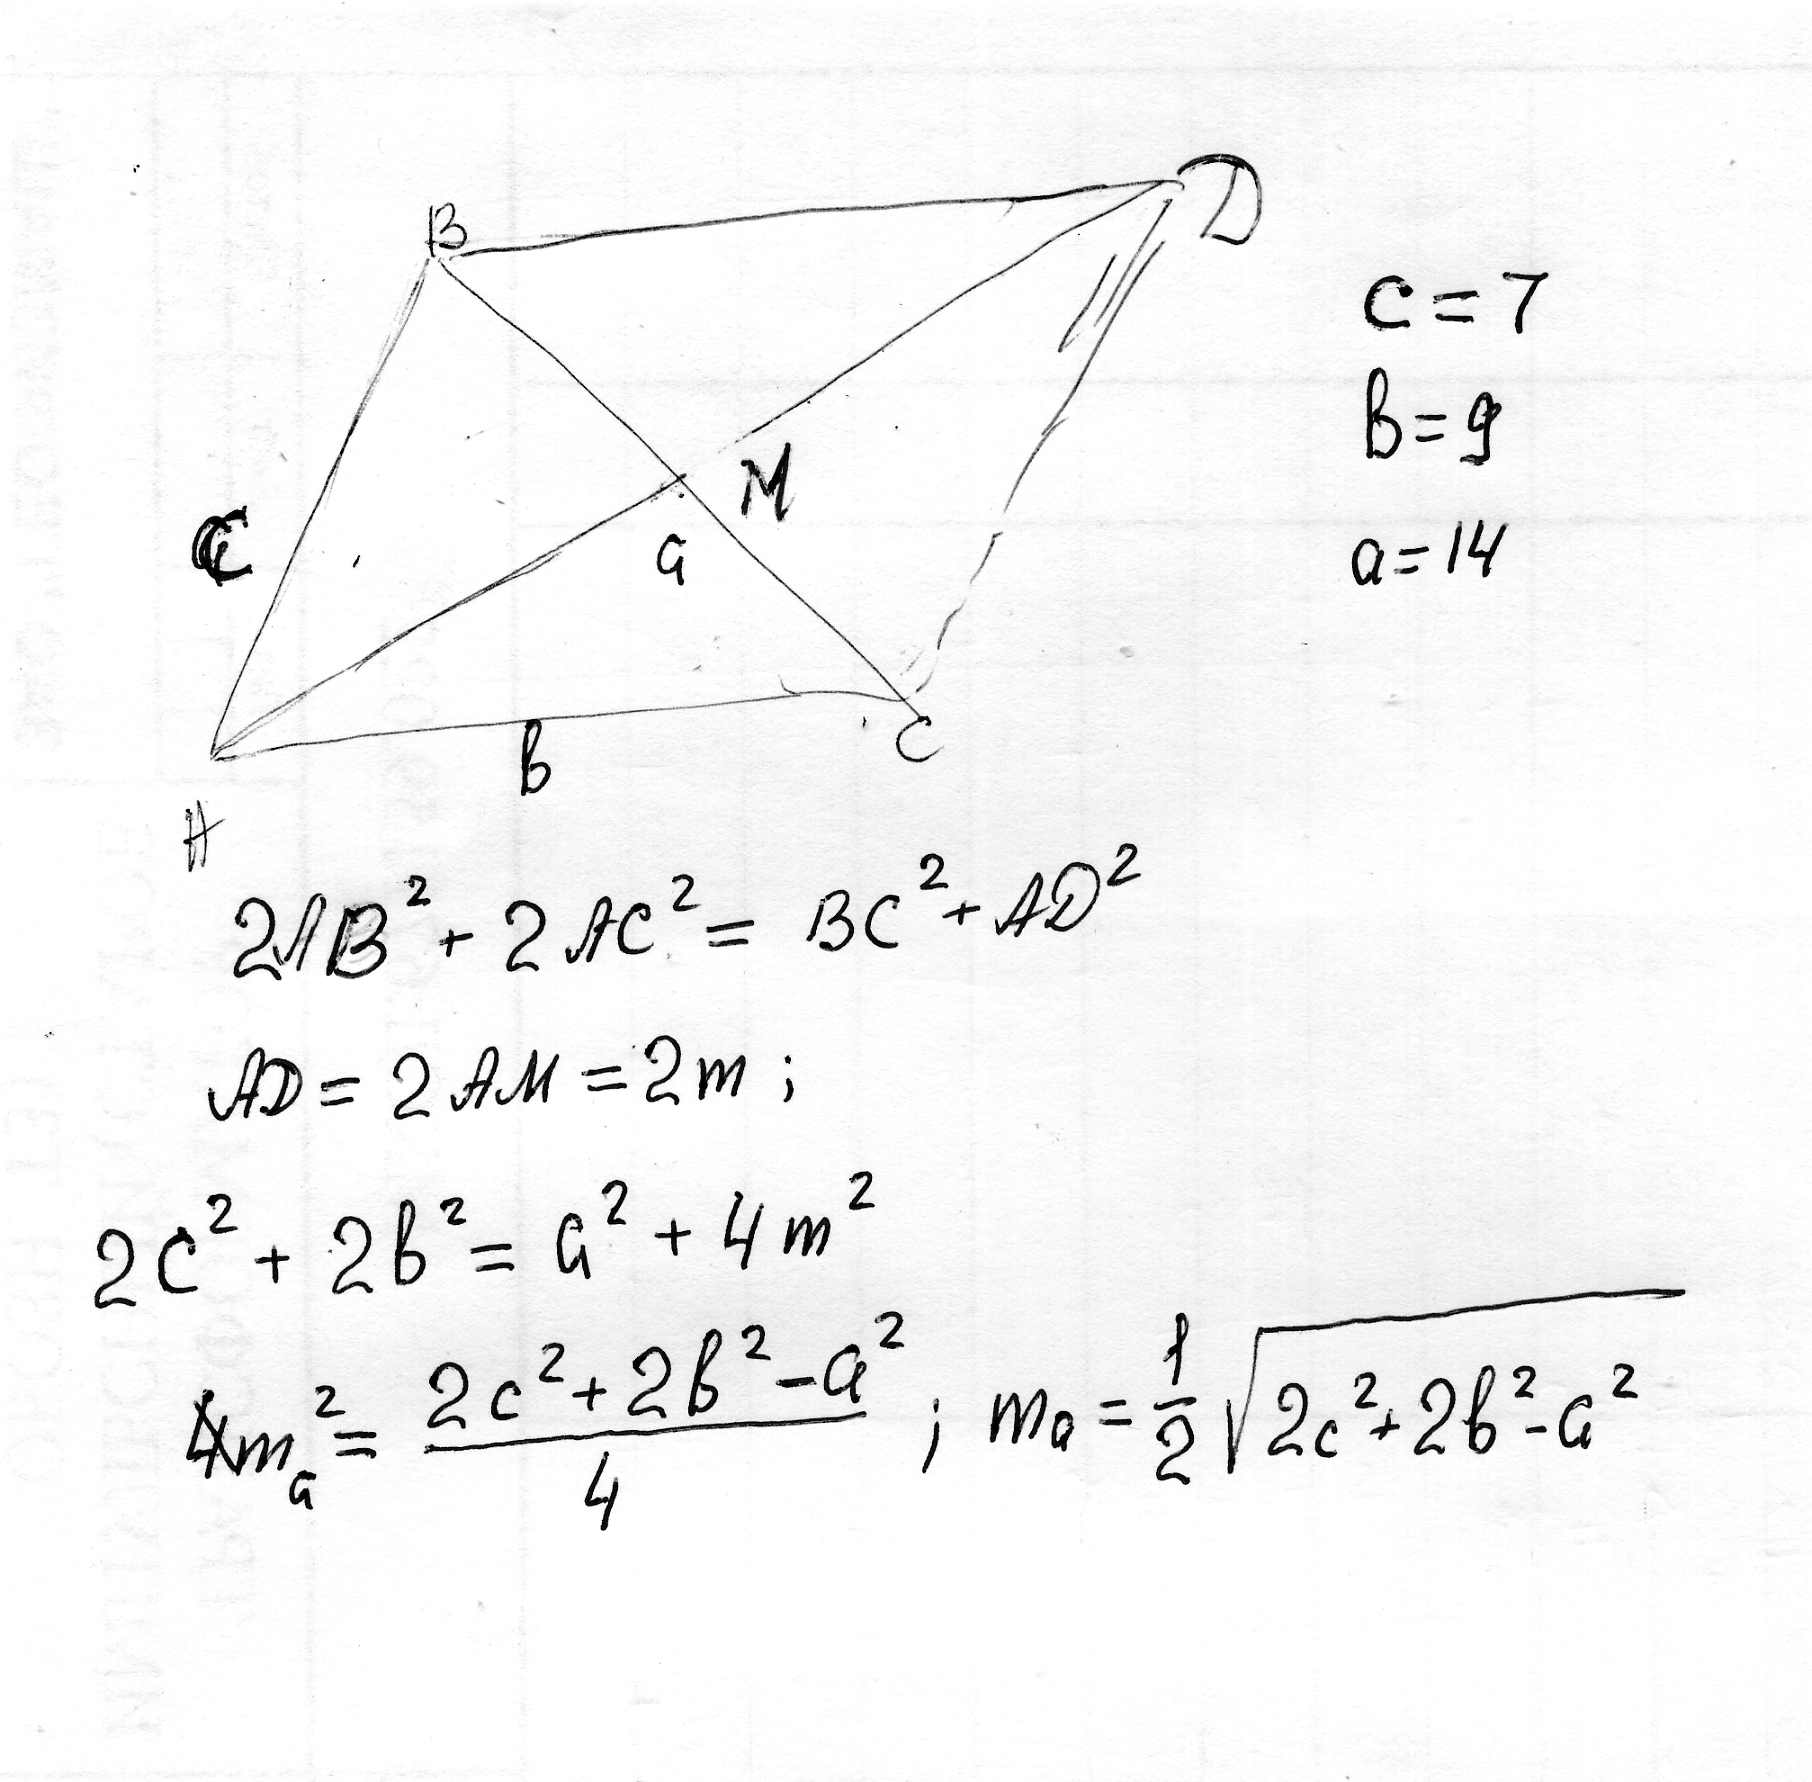 B
D
c = 7
b = 9
a = 14
M
C
a
b
C
A
2AB² + 2AC² = BC² + AD²
AD = 2AM = 2m ;
2c² + 2b² = a² + 4m²
mₐ² = (2c² + 2b² - a²)/4 ; mₐ = 1/2 √(2c² + 2b² - a²)